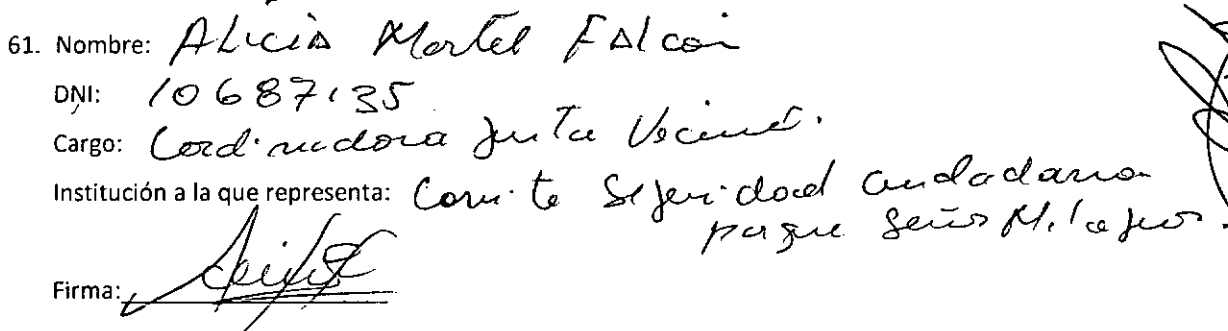 61. Nombre: Alicia Martel Falcon
DNI: 10687135
Cargo: Cordinadora Junta Vecinal.
Institución a la que representa: Comite Seguridad Ciudadana
parque Señor Milagros.
Firma: